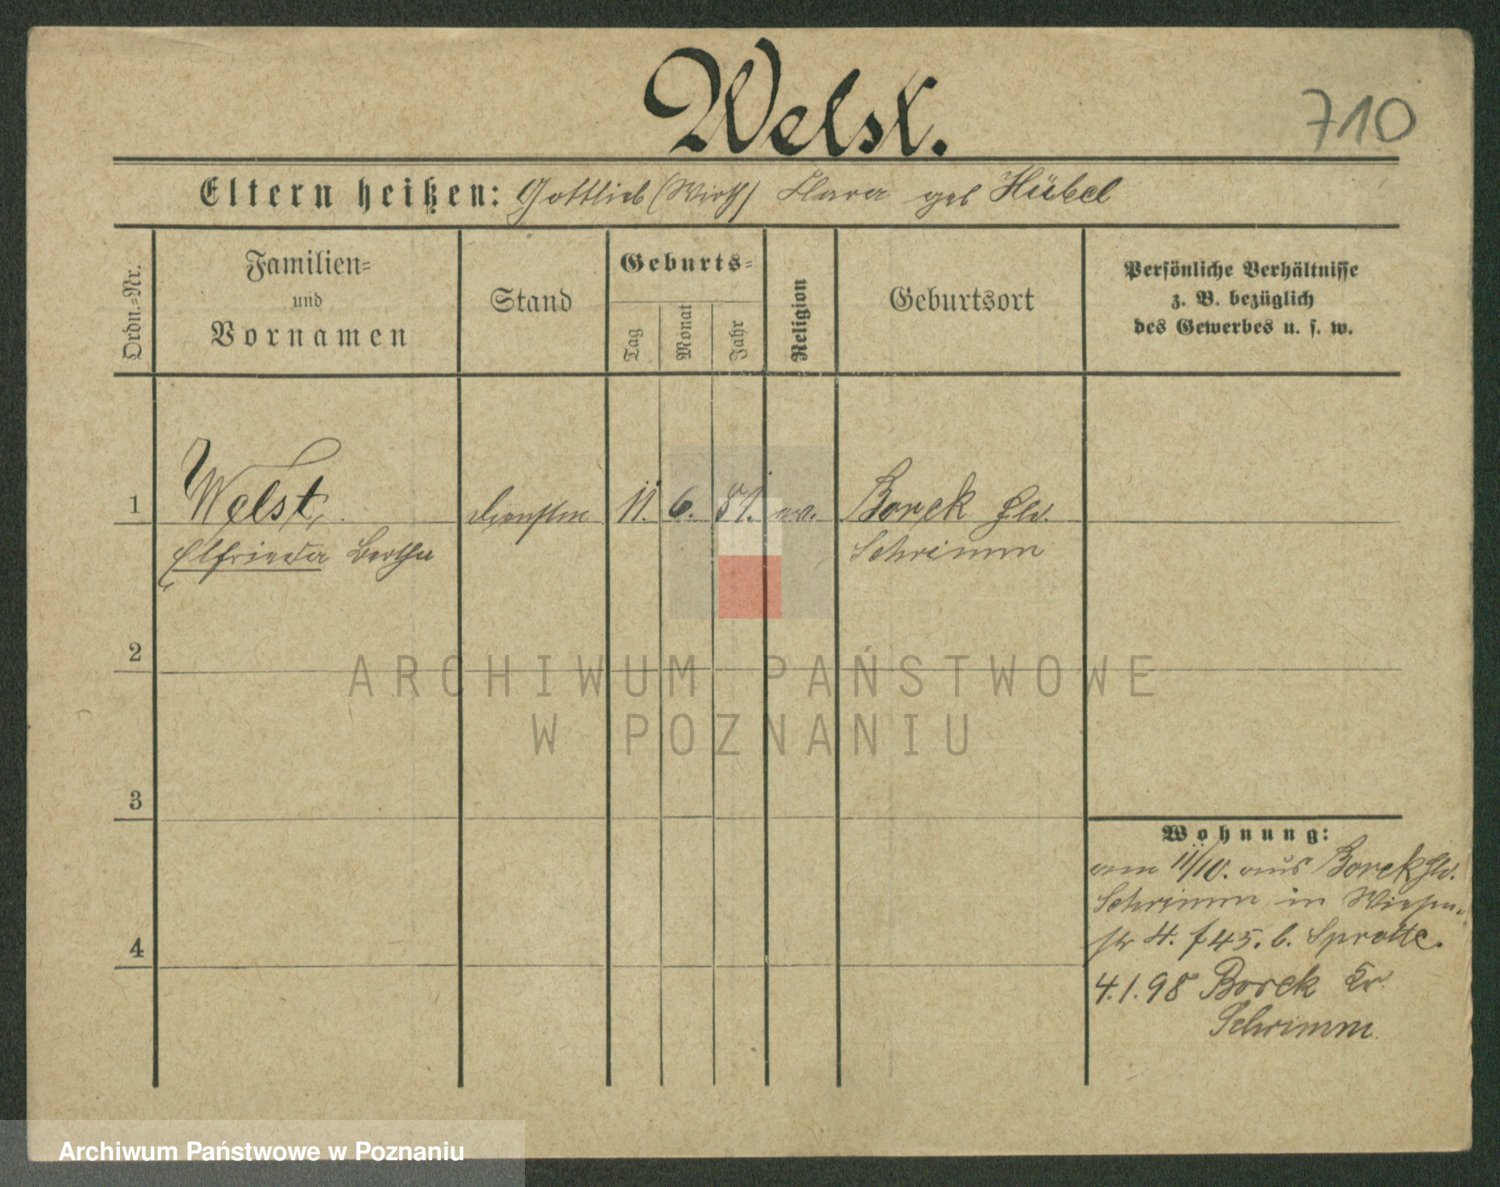 Welst.
710
Eltern heißen: Gottlieb (Wirth) Clara geb Hübel
Ordn.-Nr.
Familien-
und
Vornamen
Stand
Geburts-
Tag
Monat
Jahr
Religion
Geburtsort
Persönliche Verhältnisse
z. B. bezüglich
des Gewerbes u. s. w.
1 Welst, 11. 6. 81. ev. Borek
Elfrieda Bertha Schrimm
2
3
4
Wohnung:
am 11/10. aus Borek
Schrimm in Wiesen-
str 4. b. Sprotte.
4.1.98 Borek Kr.
Schrimm
ARCHIWUM PAŃSTWOWE
W POZNANIU
Archiwum Państwowe w Poznaniu